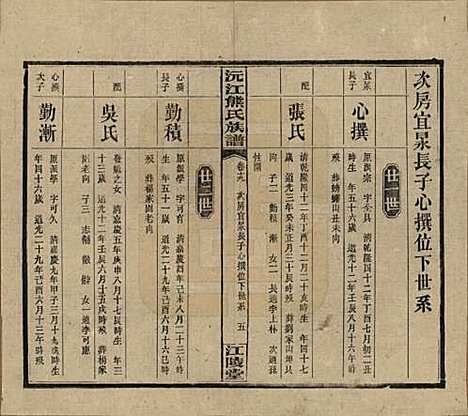 次房宜泉長子心撰位下世系
世二
宜泉
長子
心撰
原派宗 字企
清乾隆四十二年丁酉七月初二丑
時生 年五十一歲
八月十六日
時歿 葬
山丑未向
配
張氏
清乾隆四十二年丁酉十二月二十六亥時生 年四十七
歲 道光三年癸未正月三十日辰時歿 葬劉家山
向 子二 勤積 勤漸 女二 長適李上林 次
沅江熊氏族譜
卷十九 次房宜泉長子心撰位下世系 五
江陵堂
世三
心撰
長子
勤積
原派學 字可官 清嘉慶四年己未八月二十三時
生 年五十一歲 道光二十九年己酉六月十六日時
歿 葬楊家園老向
配
吳氏
之女 清嘉慶五年庚申八月十七辰時生 年三
十三歲 道光十二年壬辰八月十五戌時歿 葬楊家
園老向 子三 志 女一適李可應
心撰
次子
勤漸
原派學 字可久 清嘉慶九年甲子三月十一時生
年四十六歲 道光二十九年己酉六月十三時歿